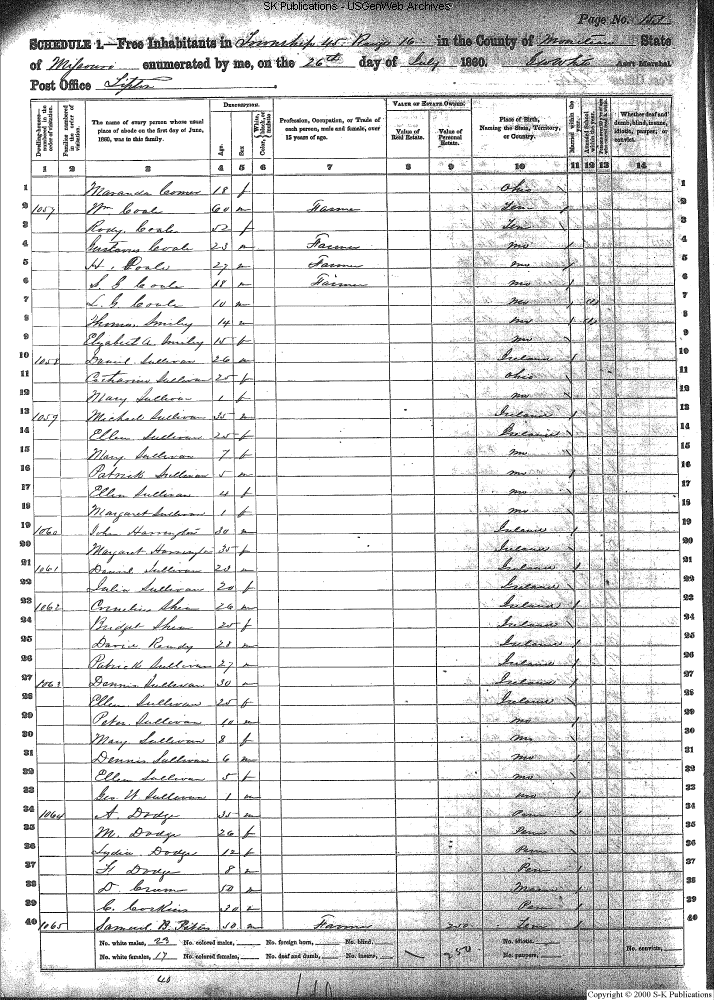 SK Publications - USGenWeb Archives
Page No. 151
SCHEDULE 1.—Free Inhabitants in Township 45 Range 16 in the County of Moniteau State
of Missouri enumerated by me, on the 26th day of July 1860. Ass't Marshal
Post Office Tipton
Dwelling-houses— numbered in the order of visitation.
Families numbered in the order of visitation.
The name of every person whose usual place of abode on the first day of June, 1860, was in this family.
DESCRIPTION.
Age.
Sex
Color, White, black, or mulatto
Profession, Occupation, or Trade of each person, male and female, over 15 years of age.
VALUE OF ESTATE OWNED.
Value of Real Estate.
Value of Personal Estate.
Place of Birth, Naming the State, Territory, or Country.
Married within the year.
Whether deaf and dumb, blind, insane, idiotic, pauper, or convict.
1 2 3 4 5 6 7 8 9 10 11 12 13 14
1 Maranda Comer 18 f Ohio 1
2 1057 Wm Coale 60 m Farmer Ten 2
3 Rody Coale 52 f Ten 3
4 Gustavus Coale 23 m Farmer mo 4
5 H. Coale 27 m Farmer mo 5
6 S G Coale 18 m Farmer mo 6
7 L. G Coale 10 m Mo 7
8 Thomas Smiley 14 m mo 8
9 Elizabeth A. Smiley 15 f mo 9
10 1058 Daniel Sullivan 26 m Ireland 10
11 Catharine Sullivan 25 f Ohio 11
12 Mary Sullivan 1 f mo 12
13 1059 Michael Sullivan 35 m Ireland 13
14 Ellen Sullivan 25 f Ireland 14
15 Mary Sullivan 7 f mo 15
16 Patrick Sullivan 5 m mo 16
17 Ellen Sullivan 4 f mo 17
18 Margaret Sullivan 1 f mo 18
19 1060 John Harrington 30 m Ireland 19
20 Margaret Harrington 35 f Ireland 20
21 1061 Daniel Sullivan 23 m Ireland 21
22 Julia Sullivan 20 f Ireland 22
23 1062 Cornelius Shea 26 m Ireland 23
24 Bridget Shea 25 f Ireland 24
25 David 28 m Ireland 25
26 Patrick Sullivan 27 m Ireland 26
27 1063 Dennis Sullivan 30 m Ireland 27
28 Ellen Sullivan 25 f Ireland 28
29 Peter Sullivan 10 m mo 29
30 Mary Sullivan 8 f mo 30
31 Dennis Sullivan 6 m mo 31
32 Ellen Sullivan 5 f mo 32
33 Geo W Sullivan 1 m mo 33
34 1064 A. Dodge 35 m Pen 34
35 M. Dodge 26 f Pen 35
36 Lydia Dodge 12 f Pen 36
37 H. Dodge 8 m Pen 37
38 D. Crum 50 m 38
39 C. Corkins 30 m Pen 39
40 1065 Samuel B. 50 m Farmer 250 Ten 40
No. white males, 23 No. colored males, No. foreign born, No. blind, No. idiotic, No. convicts,
No. white females, 17 No. colored females, No. deaf and dumb, No. insane, 250 No. paupers,
40
Copyright © 2000 S-K Publications